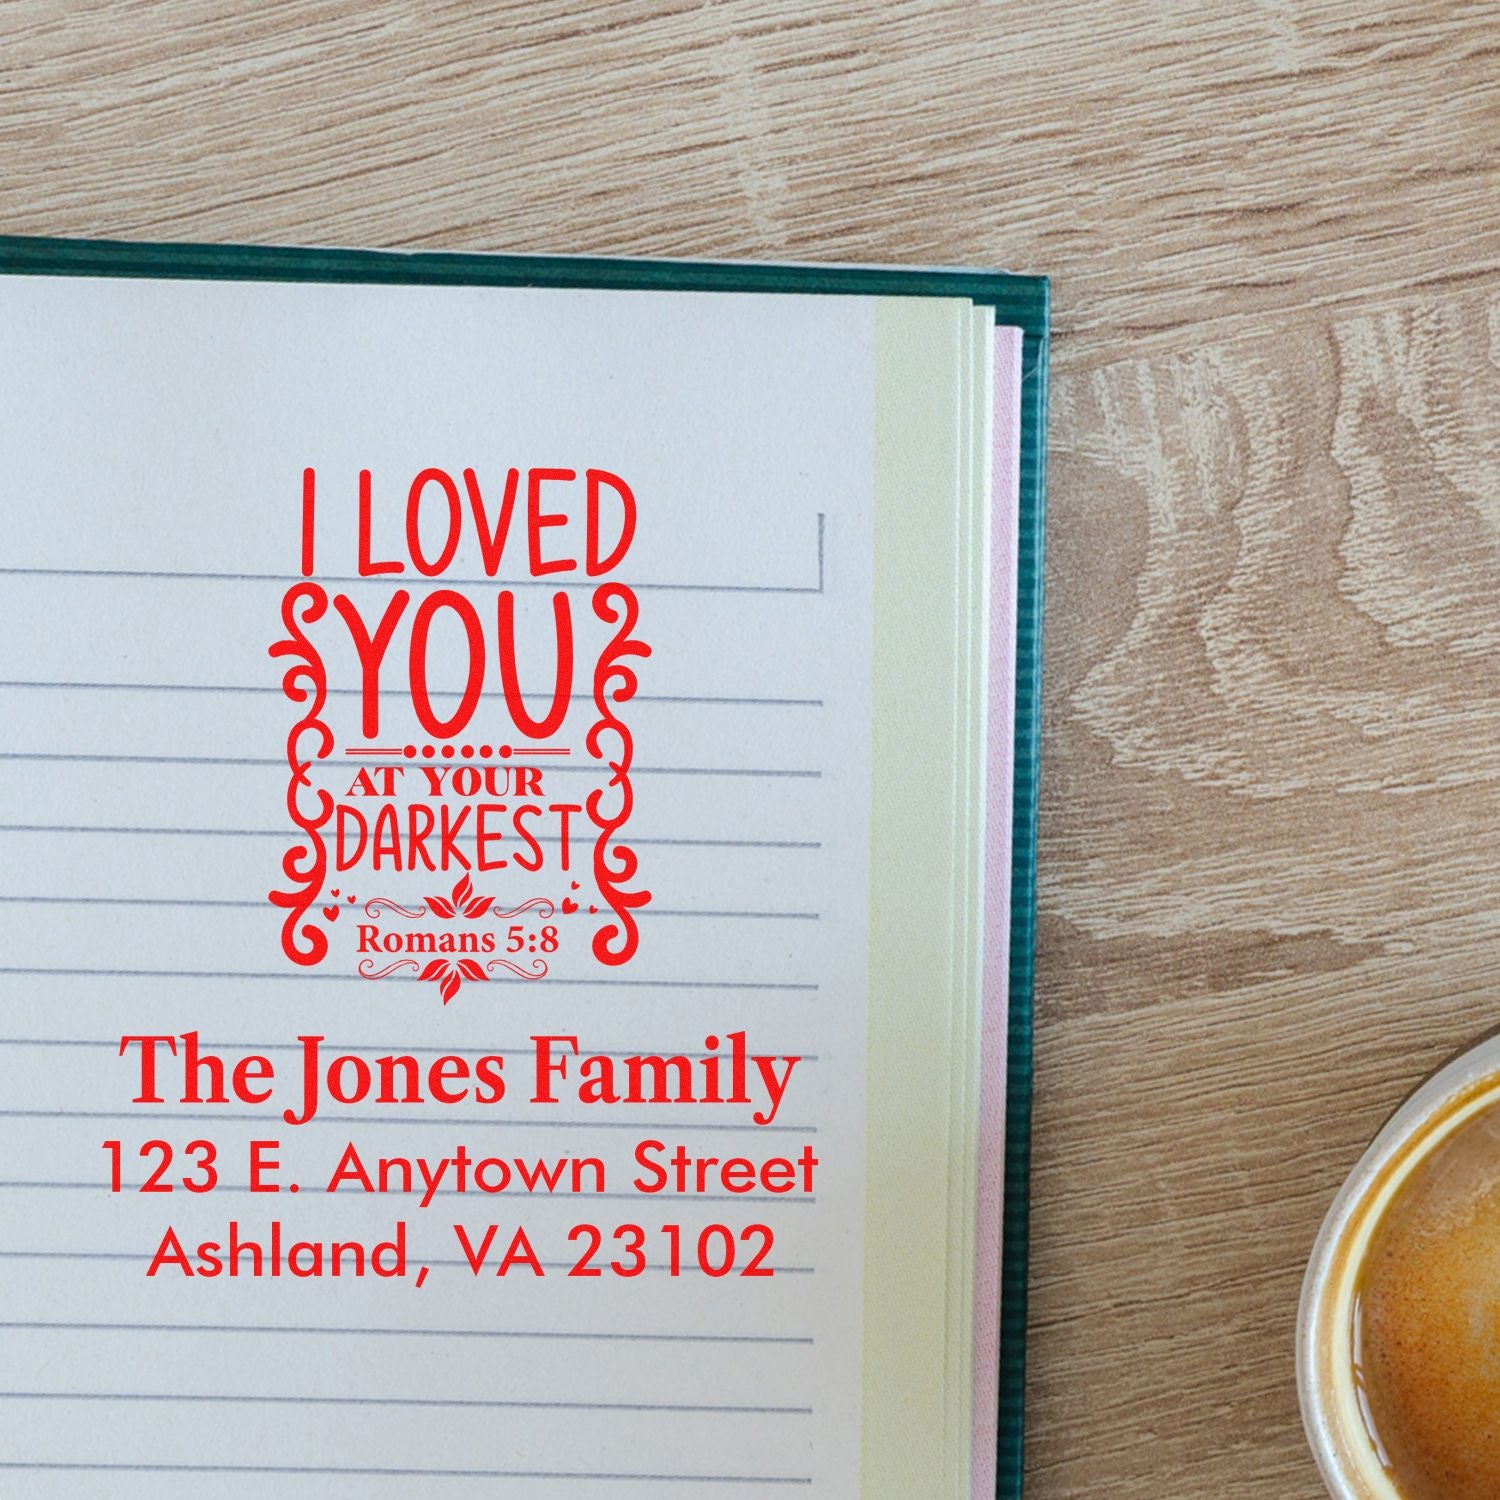 I LOVED
YOU
AT YOUR
DARKEST
Romans 5:8
The Jones Family
123 E. Anytown Street
Ashland, VA 23102